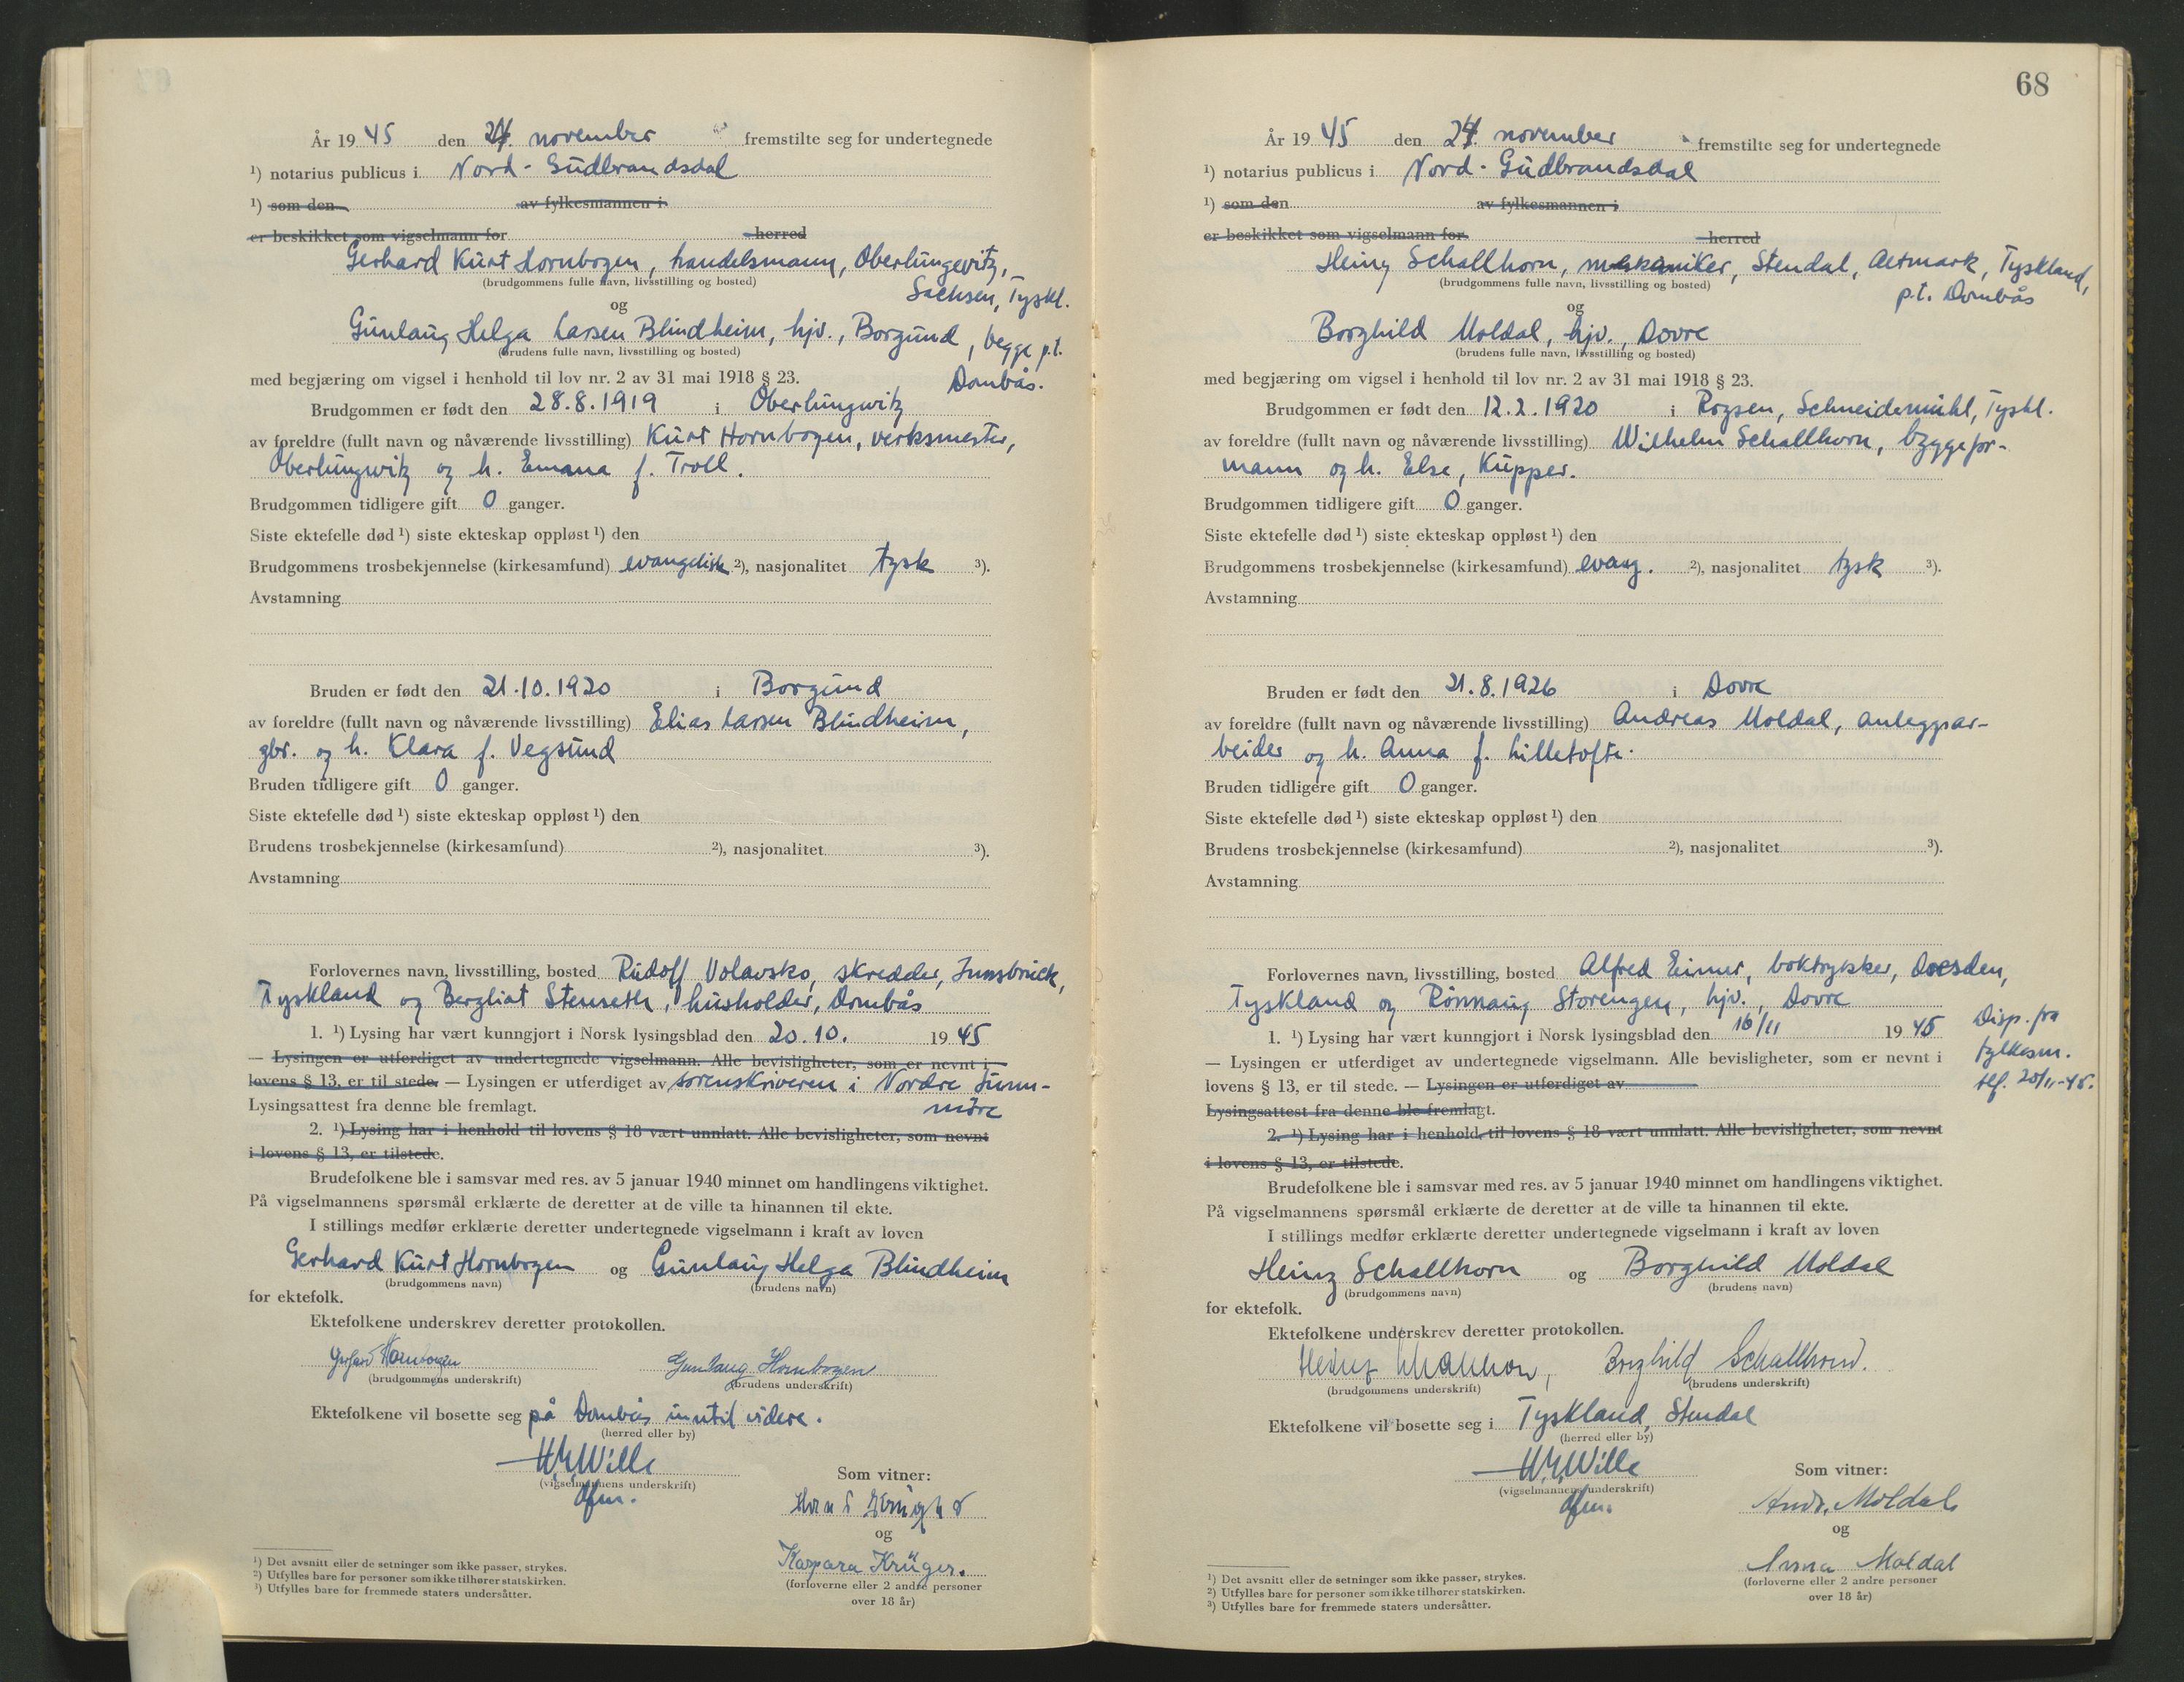 År 1945 den 24. november fremstilte seg for undertegnede
¹) notarius publicus i Nord-Gudbrandsdal
¹) som den av fylkesmannen i
er beskikket som vigselmann for herred
Gerhard Kurt Hornbogen, handelsmann, Oberlungevitz,
(brudgommens fulle navn, livsstilling og bosted)
Sachsen, Tyskl.
og
Gunlaug Helga Larsen Blindheim, hjv., Borgund, begge p.t.
(brudens fulle navn, livsstilling og bosted)
Dombås.
med begjæring om vigsel i henhold til lov nr. 2 av 31 mai 1918 § 23.
Brudgommen er født den 28.8.1919 i Oberlungwitz
av foreldre (fullt navn og nåværende livsstilling) Kurt Hornbogen, verksmester,
Oberlungwitz og h. Emma f. Troll.
Brudgommen tidligere gift 0 ganger.
Siste ektefelle død ¹) siste ekteskap oppløst ¹) den
Brudgommens trosbekjennelse (kirkesamfund) evangelisk ²), nasjonalitet tysk ³).
Avstamning
Bruden er født den 21.10.1920 i Borgund
av foreldre (fullt navn og nåværende livsstilling) Elias Larsen Blindheim,
gbr. og h. Klara f. Vegsund
Bruden tidligere gift 0 ganger.
Siste ektefelle død ¹) siste ekteskap oppløst ¹) den
Brudens trosbekjennelse (kirkesamfund) ²), nasjonalitet ³).
Avstamning
Forlovernes navn, livsstilling, bosted Rudolf Volavsko, skredder, Innsbruck,
Tyskland og Bergliot Stenseth, husholder, Dombås
1. ¹) Lysing har vært kunngjort i Norsk lysingsblad den 20.10. 1945
— Lysingen er utferdiget av undertegnede vigselmann. Alle bevisligheter, som er nevnt i
lovens § 13, er til stede. — Lysingen er utferdiget av sorenskriveren i Nordre Sunn-
Lysingsattest fra denne ble fremlagt. möre
2. ¹) Lysing har i henhold til lovens § 18 vært unnlatt. Alle bevisligheter, som nevnt
i lovens § 13, er tilstede.
Brudefolkene ble i samsvar med res. av 5 januar 1940 minnet om handlingens viktighet.
På vigselmannens spørsmål erklærte de deretter at de ville ta hinannen til ekte.
I stillings medfør erklærte deretter undertegnede vigselmann i kraft av loven
Gerhard Kurt Hornbogen og Gunlaug Helga Blindheim
(brudgommens navn) (brudens navn)
for ektefolk.
Ektefolkene underskrev deretter protokollen.
Gerhard Hornbogen Gunlaug Hornbogen
(brudgommens underskrift) (brudens underskrift)
Ektefolkene vil bosette seg på Dombås inntil videre.
(herred eller by)
Wille
(vigselmannens underskrift)
dfm.
Som vitner:
og
Kaspara Krüger.
(forloverne eller 2 andre personer
over 18 år)
¹) Det avsnitt eller de setninger som ikke passer, strykes.
²) Utfylles bare for personer som ikke tilhører statskirken.
³) Utfylles bare for fremmede staters undersåtter.
68
År 1945 den 24. november fremstilte seg for undertegnede
¹) notarius publicus i Nord-Gudbrandsdal
¹) som den av fylkesmannen i
er beskikket som vigselmann for herred
Heinz Schallhorn, mekaniker, Stendal, Altmark, Tyskland,
(brudgommens fulle navn, livsstilling og bosted)
p.t. Dombås
og
Borghild Moldal, hjv., Dovre
(brudens fulle navn, livsstilling og bosted)
med begjæring om vigsel i henhold til lov nr. 2 av 31 mai 1918 § 23.
Brudgommen er født den 12.2.1920 i Rogsen, Schneidemühl, Tyskl.
av foreldre (fullt navn og nåværende livsstilling) Wilhelm Schallhorn, byggefor-
mann og h. Else, Küpper.
Brudgommen tidligere gift 0 ganger.
Siste ektefelle død ¹) siste ekteskap oppløst ¹) den
Brudgommens trosbekjennelse (kirkesamfund) evang. ²), nasjonalitet tysk ³).
Avstamning
Bruden er født den 21.8.1926 i Dovre
av foreldre (fullt navn og nåværende livsstilling) Andreas Moldal, anleggsar-
beider og h. Anna f. Lilletofte.
Bruden tidligere gift 0 ganger.
Siste ektefelle død ¹) siste ekteskap oppløst ¹) den
Brudens trosbekjennelse (kirkesamfund) ²), nasjonalitet ³).
Avstamning
Forlovernes navn, livsstilling, bosted Alfred Eimer, boktrykker, Dresden,
Tyskland og Rönnaug Storengen, hjv., Dovre
1. ¹) Lysing har vært kunngjort i Norsk lysingsblad den 16/11 1945
Disp. fra
fylkesm.
tlf. 20/11-45.
— Lysingen er utferdiget av undertegnede vigselmann. Alle bevisligheter, som er nevnt i
lovens § 13, er til stede. — Lysingen er utferdiget av
Lysingsattest fra denne ble fremlagt.
2. ¹) Lysing har i henhold til lovens § 18 vært unnlatt. Alle bevisligheter, som nevnt
i lovens § 13, er tilstede.
Brudefolkene ble i samsvar med res. av 5 januar 1940 minnet om handlingens viktighet.
På vigselmannens spørsmål erklærte de deretter at de ville ta hinannen til ekte.
I stillings medfør erklærte deretter undertegnede vigselmann i kraft av loven
Heinz Schallhorn og Borghild Moldal
(brudgommens navn) (brudens navn)
for ektefolk.
Ektefolkene underskrev deretter protokollen.
Heinz Schallhorn, Borghild Schallhorn.
(brudgommens underskrift) (brudens underskrift)
Ektefolkene vil bosette seg i Tyskland, Stendal
(herred eller by)
Wille
(vigselmannens underskrift)
dfm.
Som vitner:
Andr. Moldal
og
Anna Moldal
(forloverne eller 2 andre personer
over 18 år)
¹) Det avsnitt eller de setninger som ikke passer, strykes.
²) Utfylles bare for personer som ikke tilhører statskirken.
³) Utfylles bare for fremmede staters undersåtter.